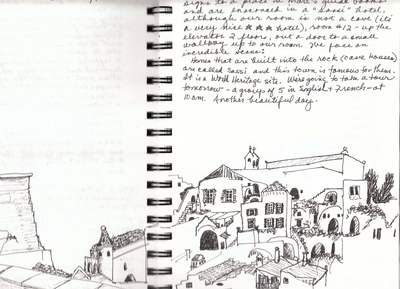 signs to a place in Marc's guide books
and are ensconced in a "Sassi" hotel,
although our room is not a cave (its
a very nice ★★★ hotel), room #12 - up the
elevator 2 floors, out a door to a small
walkway up to our room. We face an
incredible scene:
Homes that are built into the rock (cave houses)
are called Sassi and this town is famous for them.
It is a World Heritage site. We're going to take a tour
tomorrow - a group of 5 in English & French - at
10 am. Another beautiful day.